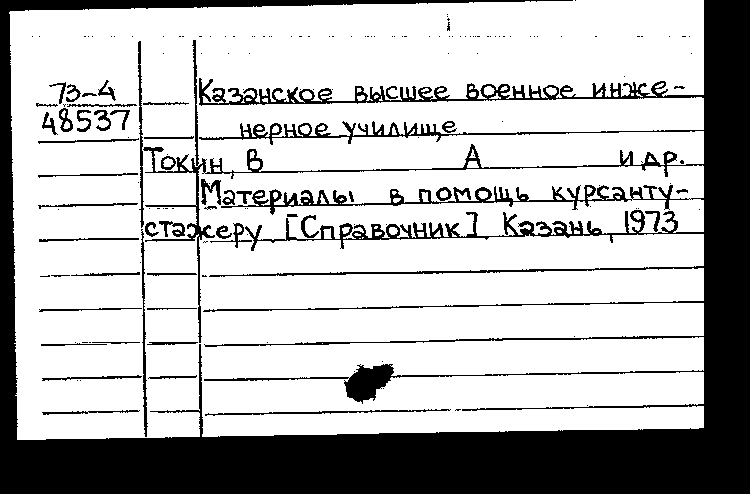 73-4 Казанское высшее военное инже-
48537 нерное училище
Токин, В А и др.
Материалы в помощь курсанту-
стажеру [Справочник] Казань, 1973